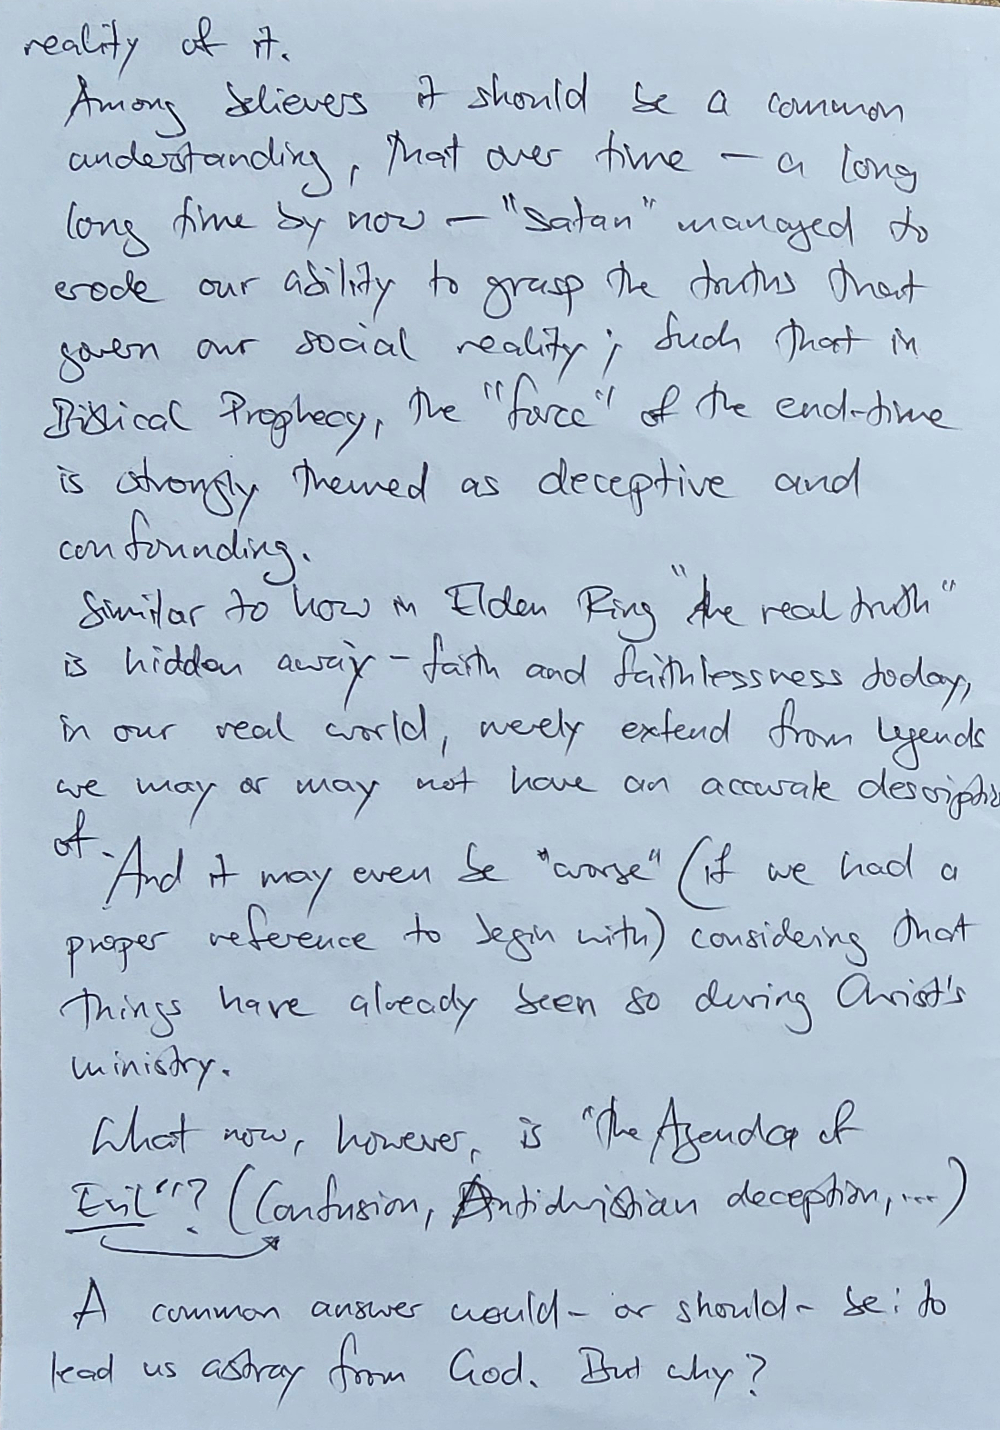 reality of it.
Among believers it should be a common
understanding, that over time – a long
long time by now – "Satan" managed to
erode our ability to grasp the truths that
govern our social reality; such that in
Biblical Prophecy, the "force" of the end-time
is strongly themed as deceptive and
confounding.
Similar to how in Elden Ring "the real truth"
is hidden away – faith and faithlessness today,
in our real world, merely extend from legends
we may or may not have an accurate descriptio
of.
And it may even be "worse" (if we had a
proper reference to begin with) considering that
things have already been so during Christ's
ministry.
What now, however, is "the Agenda of
Evil"? (Confusion, Antichristian deception, ...)
A common answer would – or should – be: to
lead us astray from God. But why?